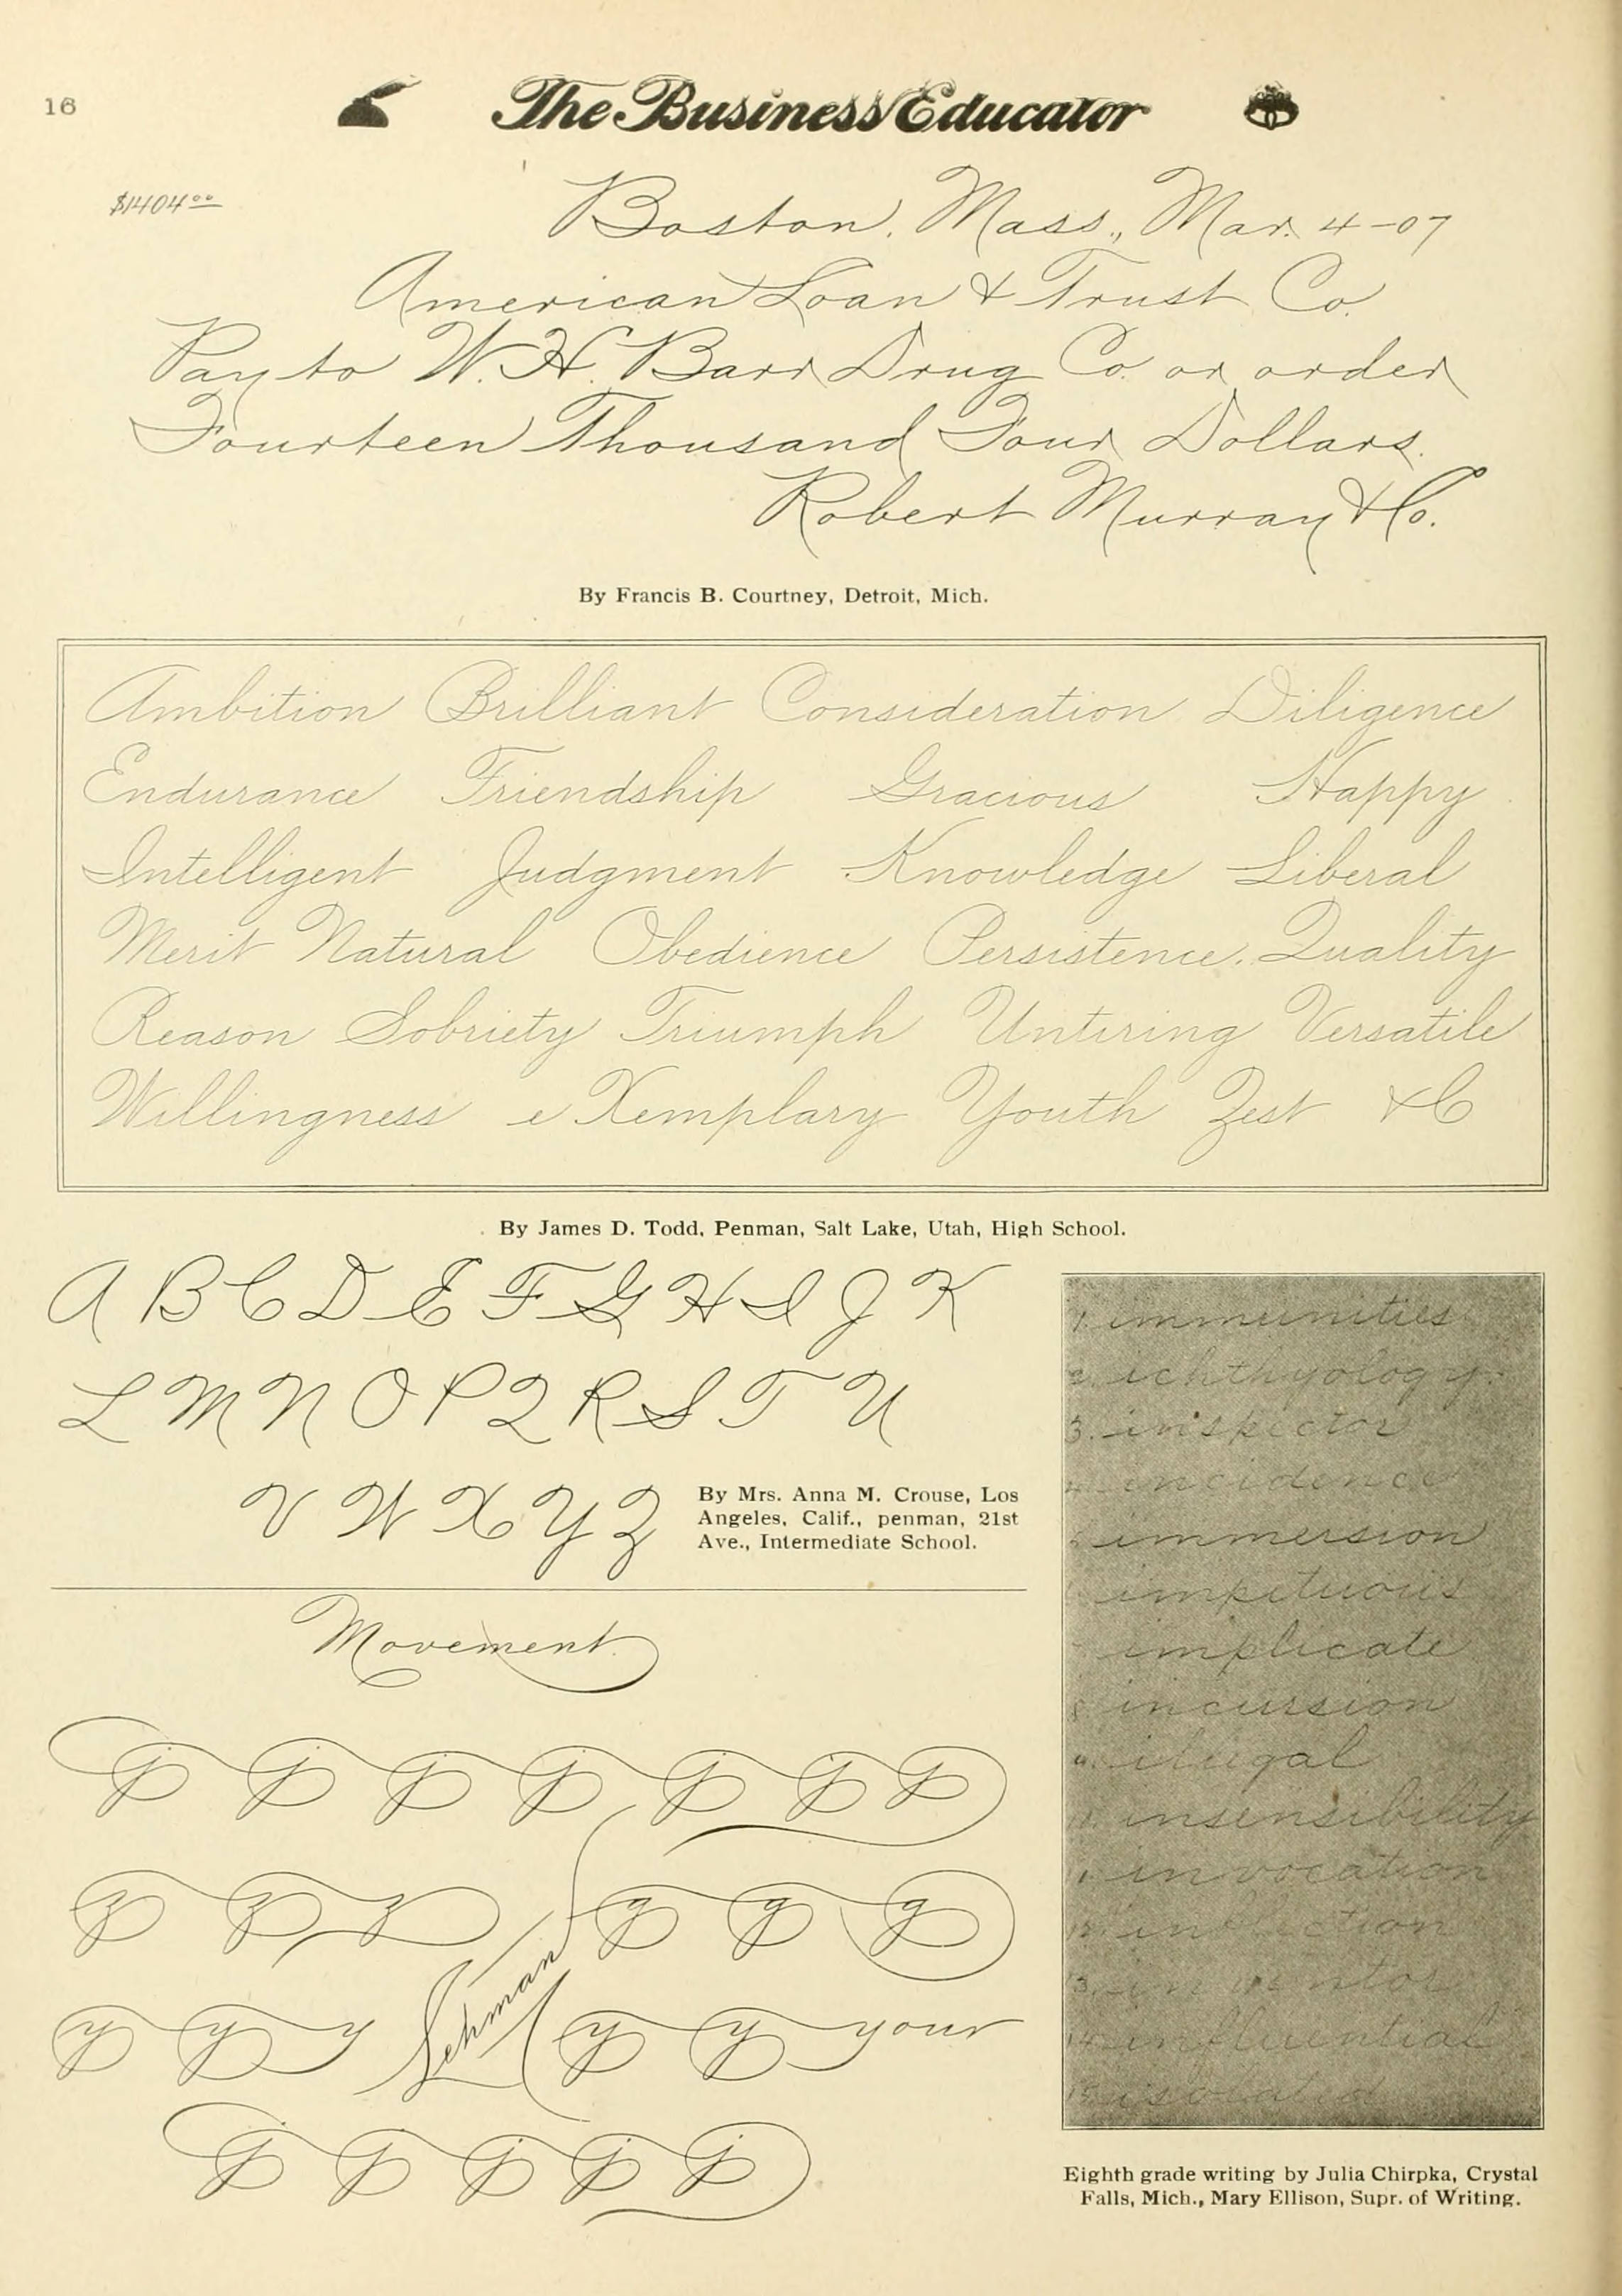 16
The Business Educator
$1404 00
Boston, Mass., Mar. 4-07
American Loan & Trust Co.
Pay to W. H. Barr Drug Co. or order
Fourteen Thousand Four Dollars.
Robert Murray & Co.
By Francis B. Courtney, Detroit, Mich.
Ambition Brilliant Consideration Diligence
Endurance Friendship Gracious Happy
Intelligent Judgment Knowledge Liberal
Merit Natural Obedience Persistence. Quality
Reason Sobriety Triumph Untiring Versatile
Willingness e Xemplary Youth Zest &C
By James D. Todd, Penman, Salt Lake, Utah, High School.
A B C D E F G H I J K
L M N O P Q R S T U
V W X Y Z
By Mrs. Anna M. Crouse, Los
Angeles, Calif., penman, 21st
Ave., Intermediate School.
Movement.
j j j j j j j
z z z g g g
y y y Lehman y y your
j j j j j
1. immunities
2. ichthyology.
3. inspector
incidence
immersion
impetuous
implicate
8 incursion
9. illegal
insensibility
invocation
12.
13. inventor
14. influential
15. isolated
Eighth grade writing by Julia Chirpka, Crystal
Falls, Mich., Mary Ellison, Supr. of Writing.